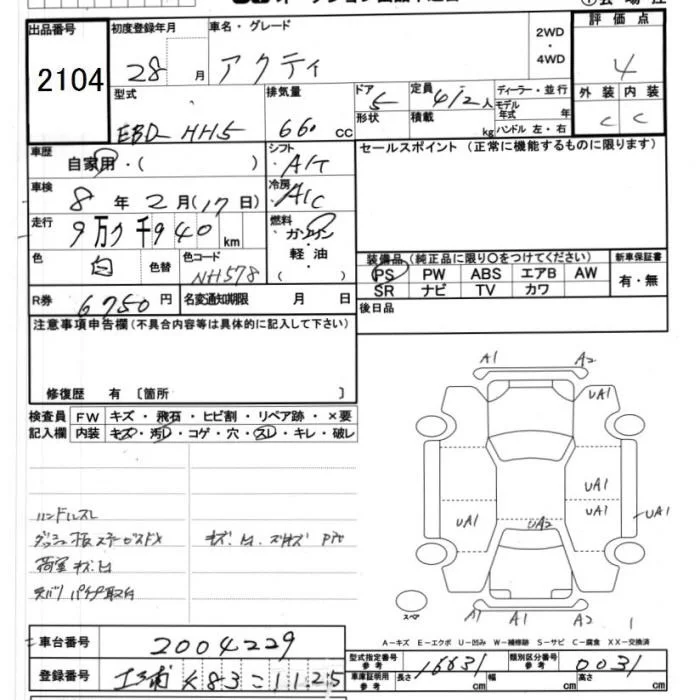 出品番号
2104
初度登録年月
28 月
車名・グレード
アクティ
2WD
・
4WD
評 価 点
4
型式
EBD- HH5
排気量
660 cc
ドア
5
形状
定員
4/2 人
積載
kg
ディーラー・並行
モデル
年式 年
ハンドル 左・右
外 装 内 装
C C
車歴
自家用・( )
シフト
・A/T
セールスポイント (正常に機能するものに限ります)
車検
8 年 2 月 (17 日)
冷房
・A/C
走行
9万 千940 km
燃料
・ガソリン
・軽 油・
( )
色
白
色替
色コード
NH578
装備品 (純正品に限り〇をつけてください)
新車保証書
PS PW ABS エアB AW
有・無
SR ナビ TV カワ
R券
6750 円
名変通知期限 月 日
後日品
注意事項申告欄 (不具合内容等は具体的に記入して下さい)
修復歴 有 〔箇所 〕
検査員
記入欄
FW キズ・飛石・ヒビ割・リペア跡・×要
内装 キズ・汚レ・コゲ・穴・スレ・キレ・破レ
A1 A2
UA1
UA1
UA1
UA1
UA1
UA2
ハンドルスレ
荷室 キズ
スペア
A1 A1 A2
A-キズ E-エクボ U-凹み W-補修跡 S-サビ C-腐食 XX-交換済
車台番号
2004229
型式指定番号
参考
16631
類別区分番号
参考
0031
登録番号
K83 こ 1125
車庫証明用
参考
長さ cm 幅 cm 高さ cm